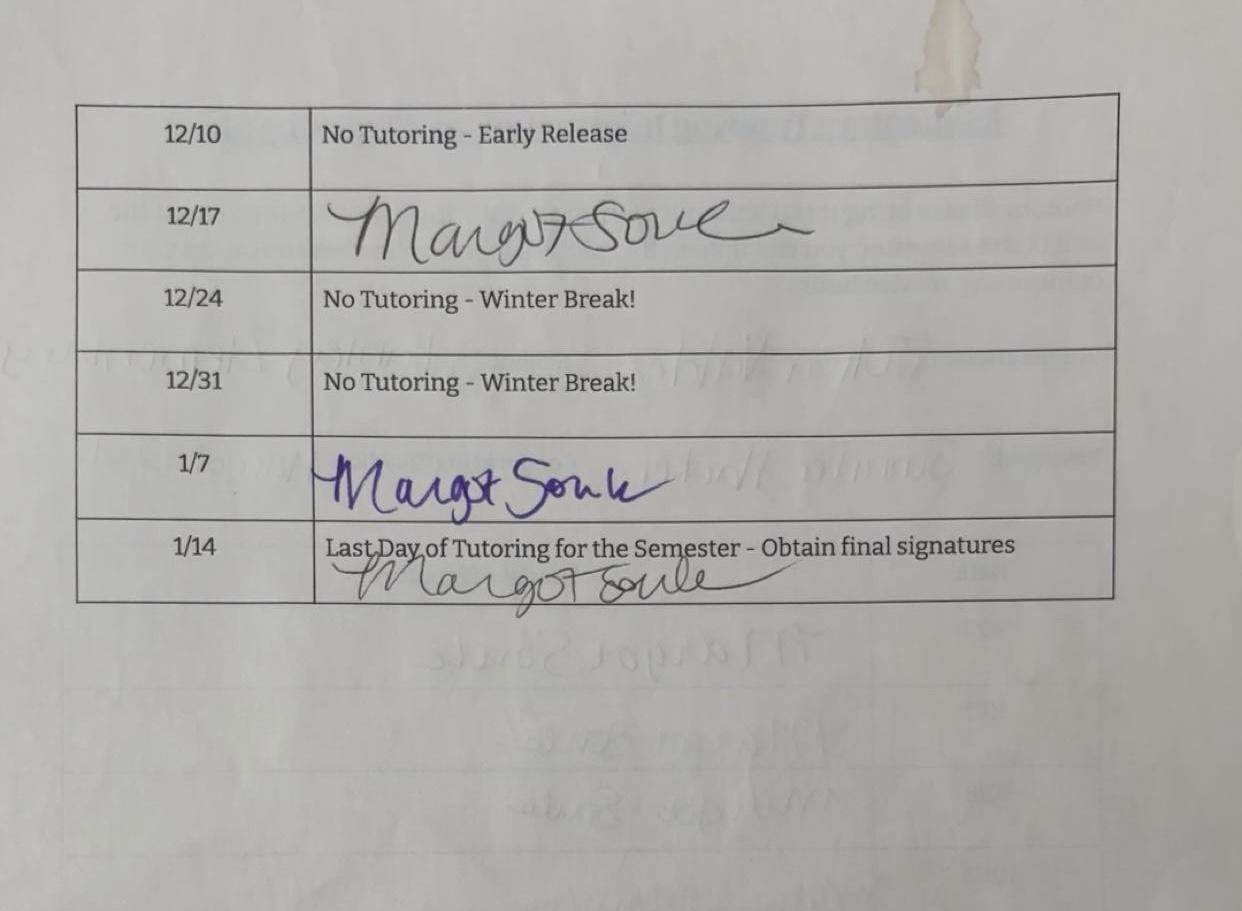 12/10 No Tutoring - Early Release
12/17 Margot Soule
12/24 No Tutoring - Winter Break!
12/31 No Tutoring - Winter Break!
1/7 Margot Soule
1/14 Last Day of Tutoring for the Semester - Obtain final signatures
Margot Soule